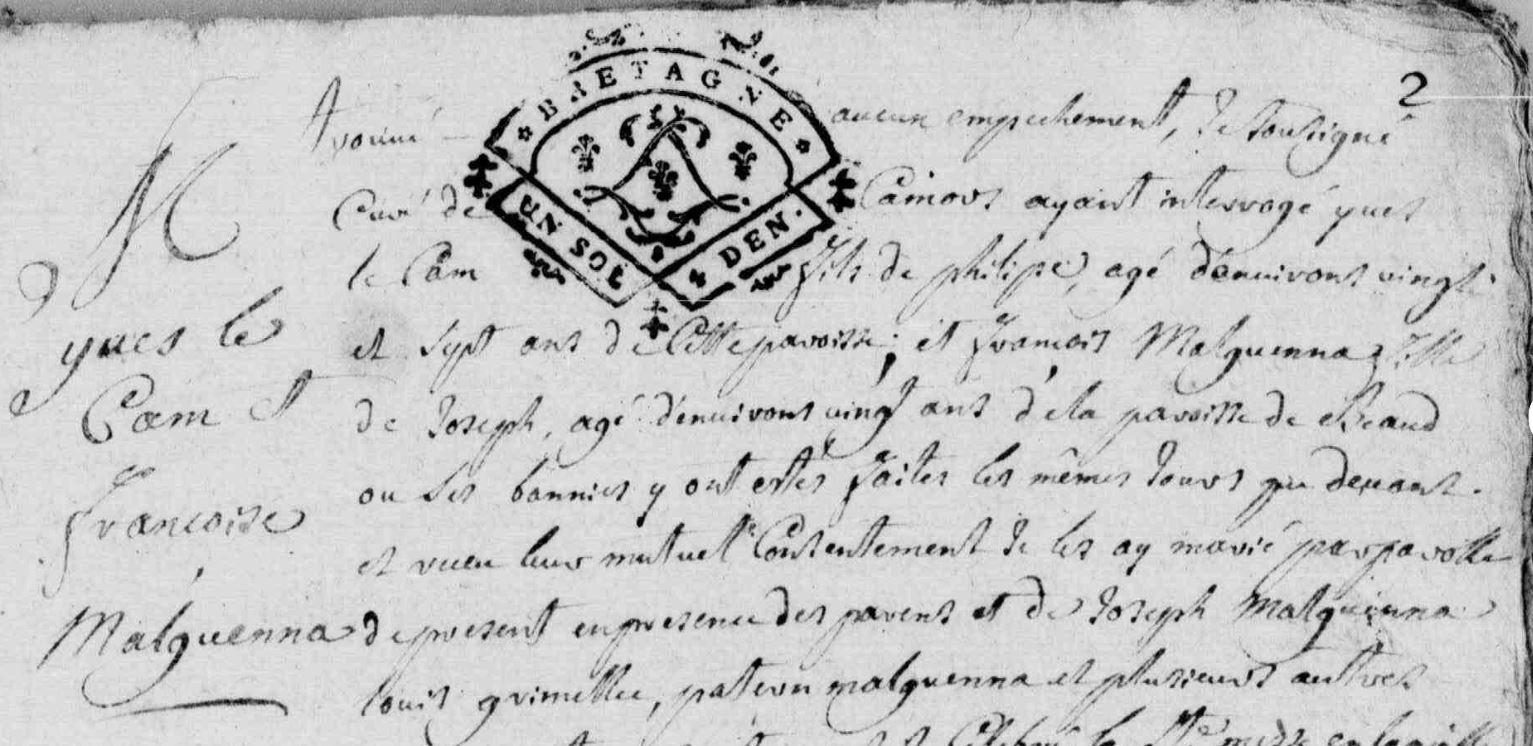 2
BRETAGNE
UN SOL
4 DEN.
M
yues le
Cam et
francoise
Malguenna
trouué aucun empechement, Je Sousigné
Curé de Camors ayant interrogé yues
le Cam fils de philipe, agé d'enuirons vingt
et sept ans de Cette paroisse; et francois Malguenna fille
de Joseph, agé d'enuirons uingt ans de la paroisse de Beaud
ou Les bannies y ont estés faites les mêmes Jours que deuant.
et rueu leur mutuel Consentement Je les ay marié par parolle
de present en presence des parens et de Joseph Malguenna
louis grimellec, patern malguenna et plusieurs autres
Celebré la Ste messe